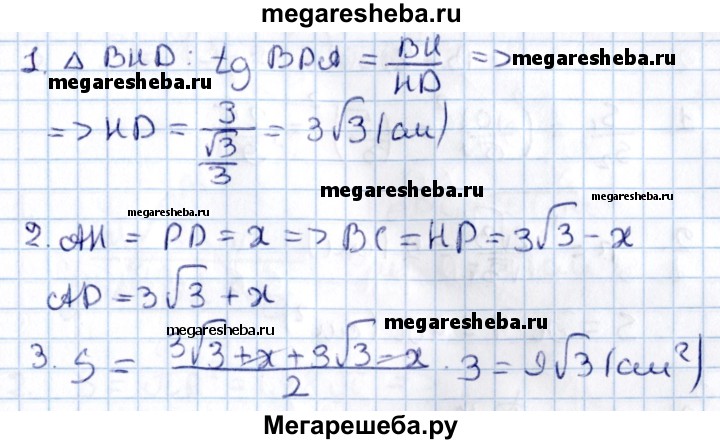 megaresheba.ru
1. Δ BHD: tg BDA = BH/HD =>
megaresheba.ru
megaresheba.ru
=> HD = 3/(√3/3) = 3√3 (см)
megaresheba.ru
megaresheba.ru
megaresheba.ru
2. AH = PD = x => BC = HP = 3√3 - x
AD = 3√3 + x
megaresheba.ru
megaresheba.ru
3. S = (3√3 + x + 3√3 - x)/2 · 3 = 9√3 (см²)
Мегарешеба.ру